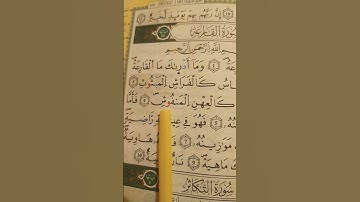 إِنَّ رَبَّهُم بِهِمْ يَوْمَئِذٍ لَّخَبِيرٌ
سُورَةُ القَارِعَة
بِسْمِ اللَّهِ الرَّحْمَٰنِ الرَّحِيمِ
وَمَا أَدْرَىٰكَ مَا الْقَارِعَةُ
كَالْفَرَاشِ الْمَبْثُوثِ ٤
كَالْعِهْنِ الْمَنفُوشِ ٥ فَأَمَّا
فَهُوَ فِي رَّاضِيَةٍ
مَوَٰزِينُهُ هَاوِيَةٌ
مَا هِيَهْ ١٠ نَارٌ
سُورَةُ التَّكَاثُر